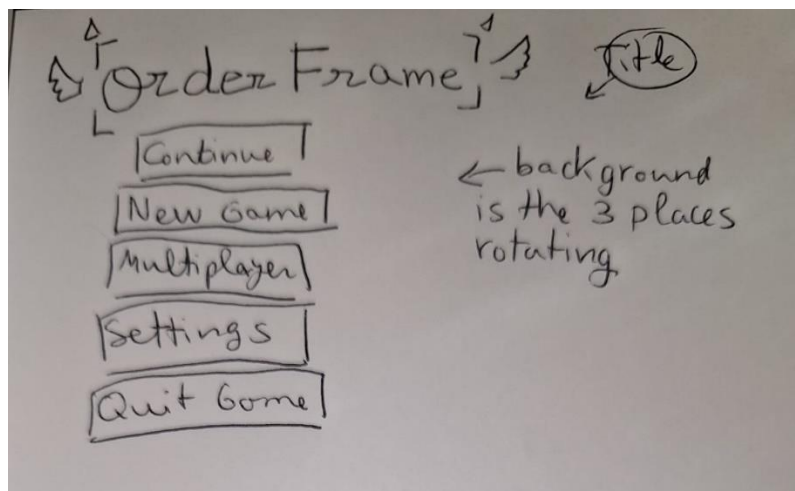 Order Frame
Title
Continue
New Game
Multiplayer
Settings
Quit Game
← background
is the 3 places
rotating